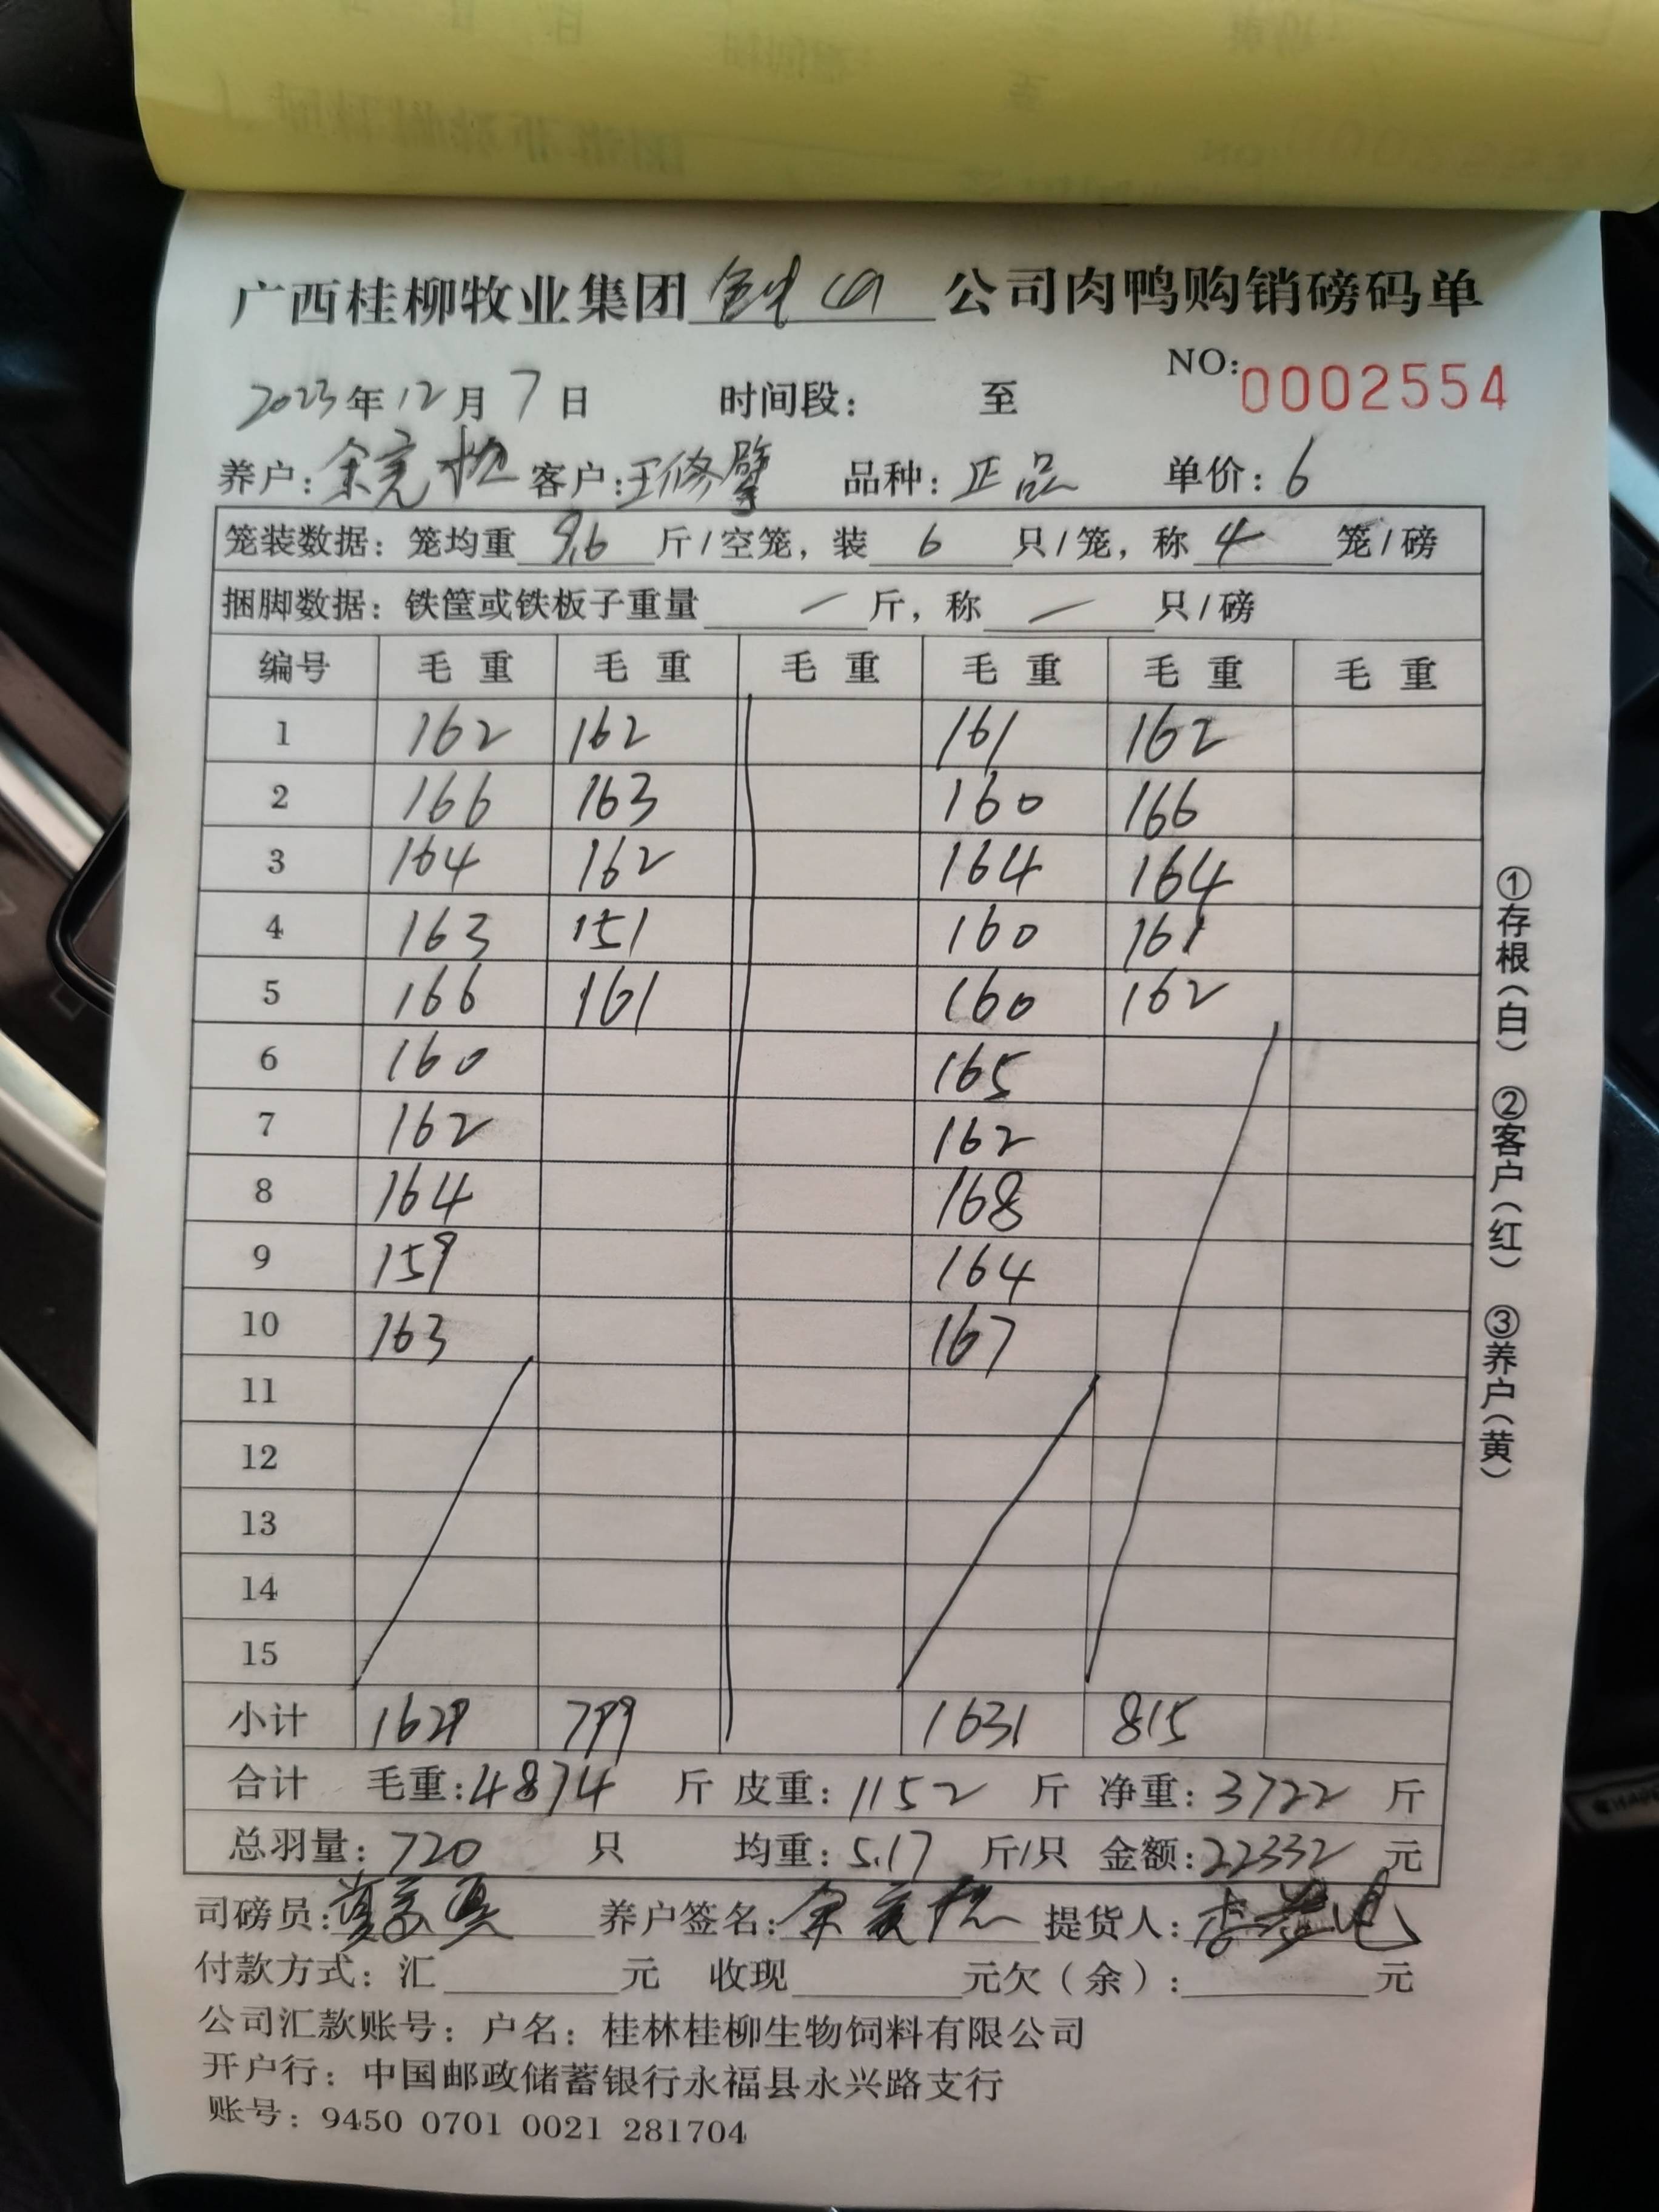 广西桂柳牧业集团 公司肉鸭购销磅码单
NO:0002554
2023年12月7日 时间段: 至
养户:余 客户:王修 品种:正品 单价:6
笼装数据:笼均重 9.6 斤/空笼,装 6 只/笼,称 4 笼/磅
捆脚数据:铁筐或铁板子重量 — 斤,称 — 只/磅
编号 毛重 毛重 毛重 毛重 毛重 毛重
1 162 162 161 162
2 166 163 160 166
3 164 162 164 164
4 163 151 160 161
5 166 161 160 162
6 160 165
7 162 162
8 164 168
9 159 164
10 163 167
11
12
13
14
15
小计 1629 799 1631 815
合计 毛重:4874 斤 皮重:1152 斤 净重:3722 斤
总羽量:720 只 均重:5.17 斤/只 金额:22332 元
司磅员: 养户签名:余 提货人:李
付款方式:汇 元 收现 元欠(余): 元
公司汇款账号:户名:桂林桂柳生物饲料有限公司
开户行:中国邮政储蓄银行永福县永兴路支行
账号:9450 0701 0021 281704
①存根(白) ②客户(红) ③养户(黄)